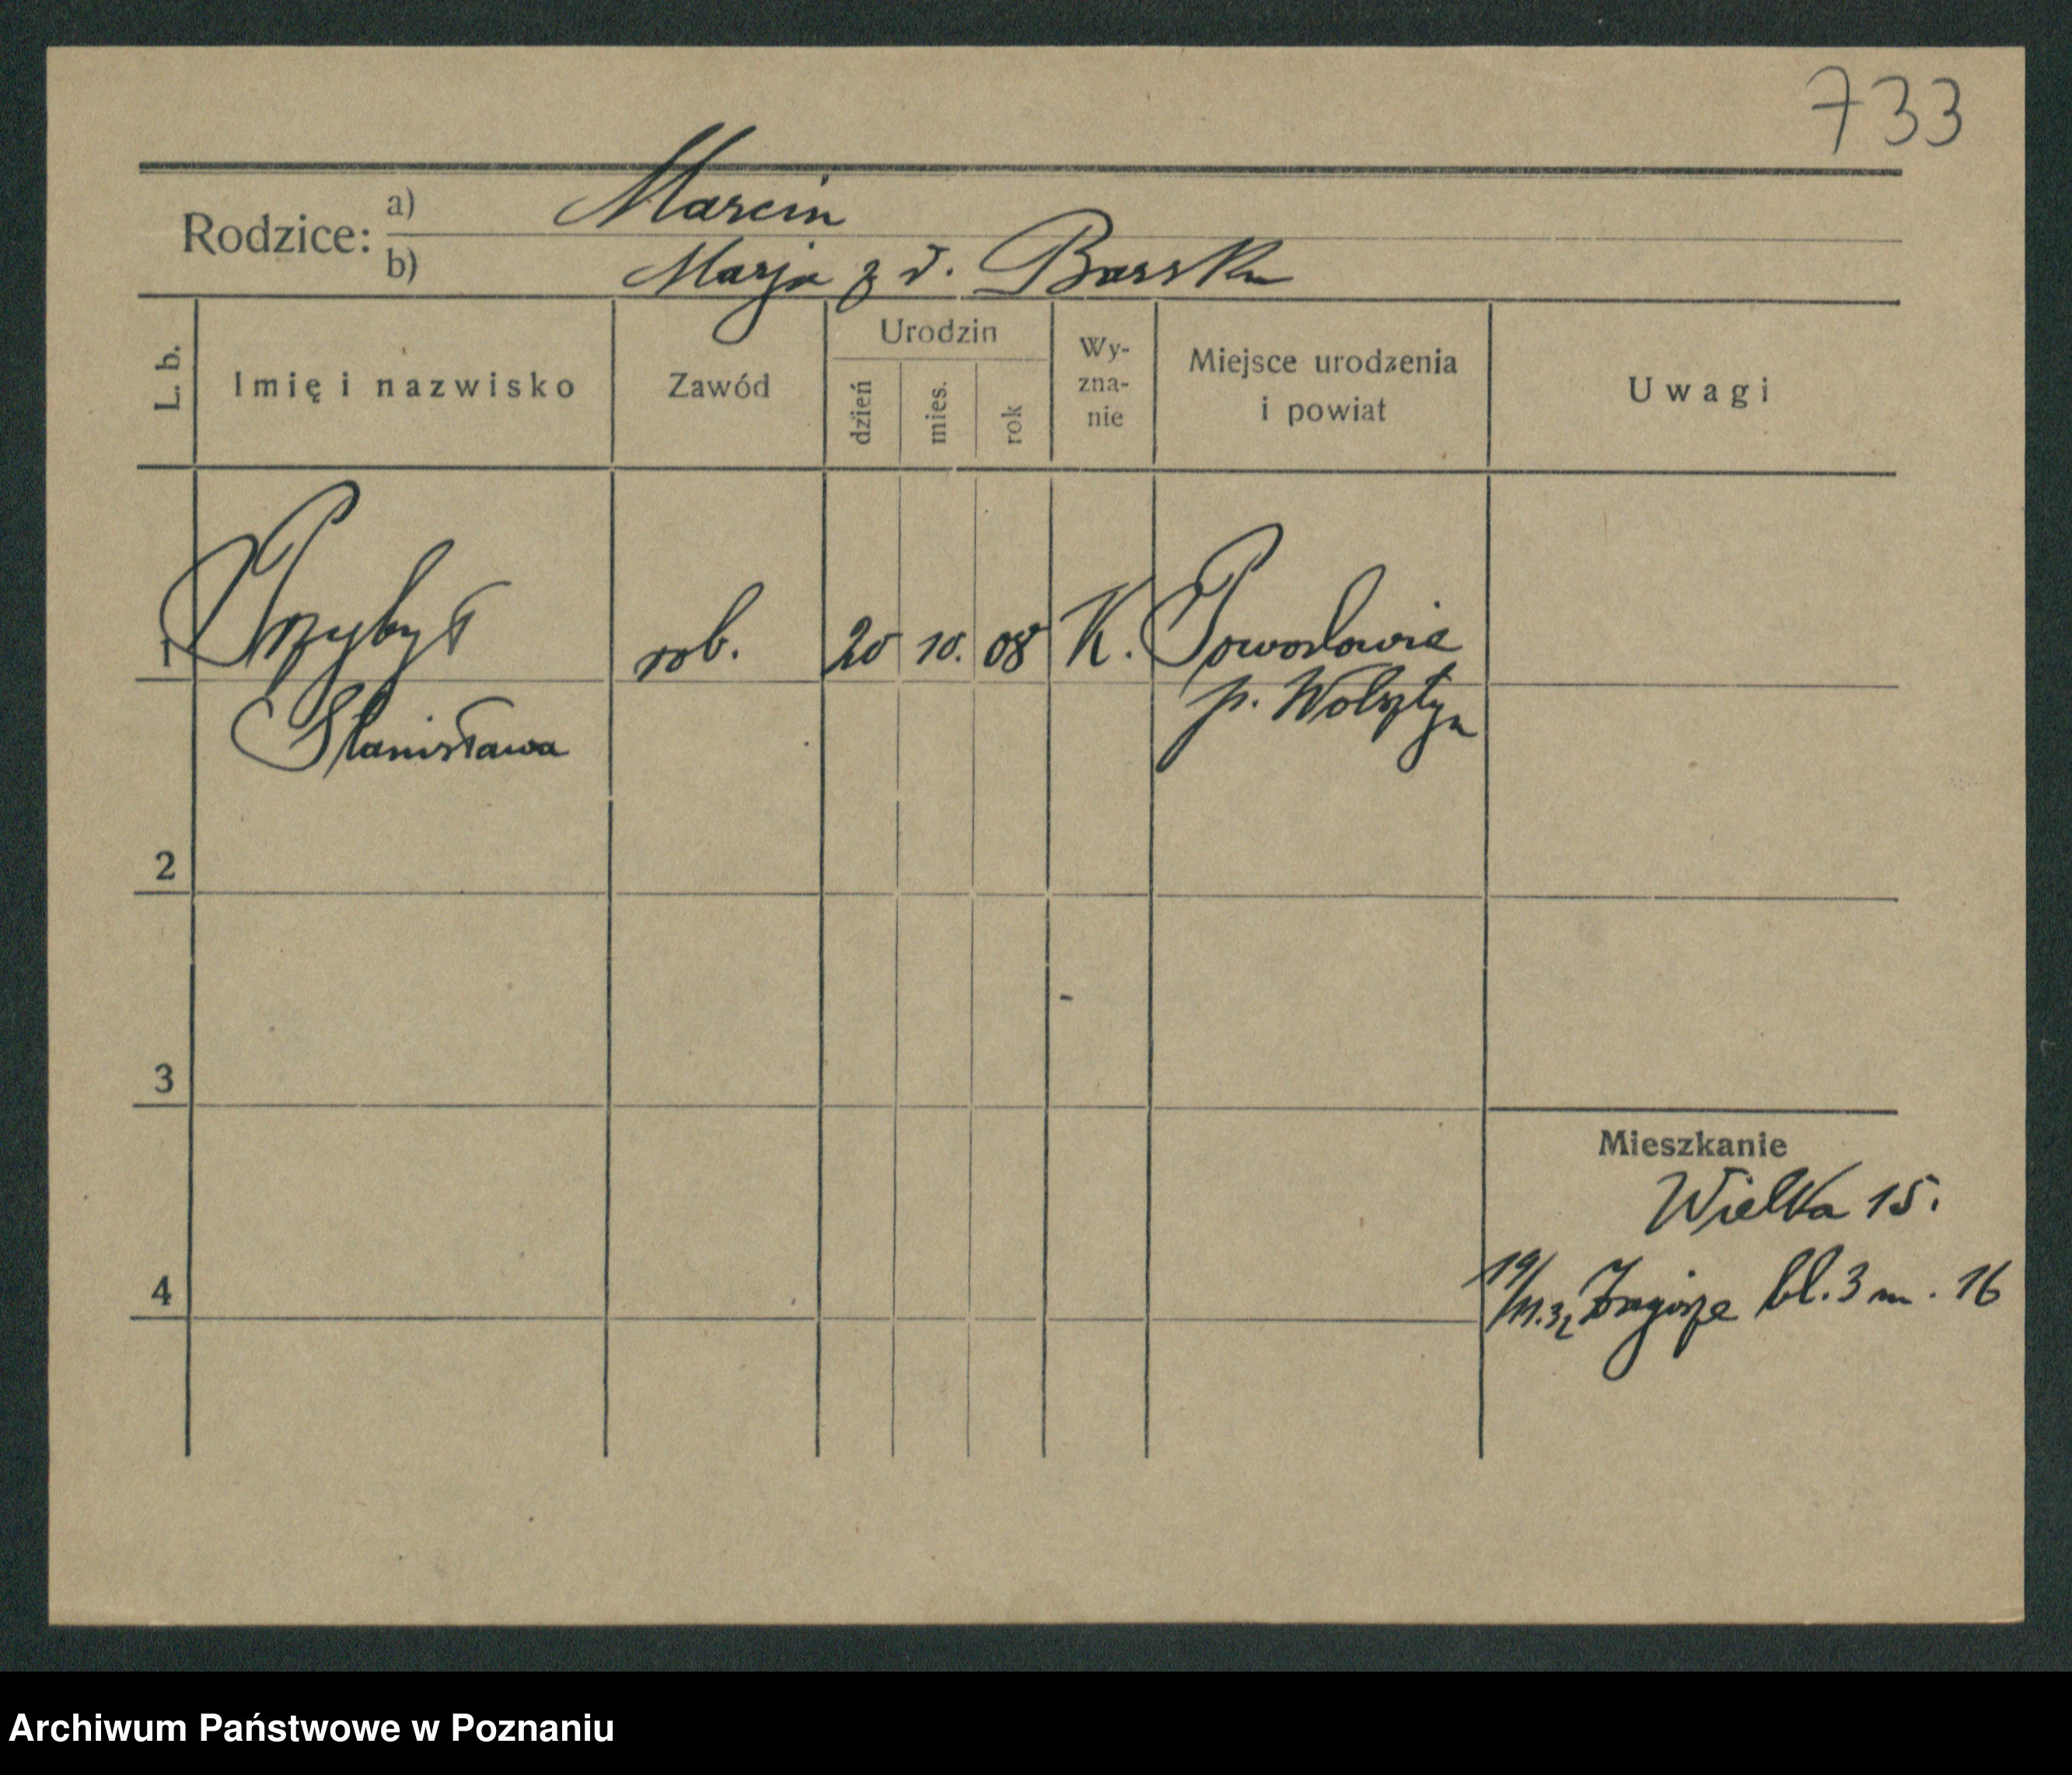 733
Rodzice: a) Marcin
b) Marja z d. Barska
L. b. Imię i nazwisko Zawód Urodzin dzień mies. rok Wy-zna-nie Miejsce urodzenia i powiat Uwagi
1 Przybył rob. 20 10. 08 K. Powodowie
Stanisława p. Wolsztyn
2
3
Mieszkanie
Wielka 15.
4
19/11.32 Zagórze bl. 3 m. 16
Archiwum Państwowe w Poznaniu